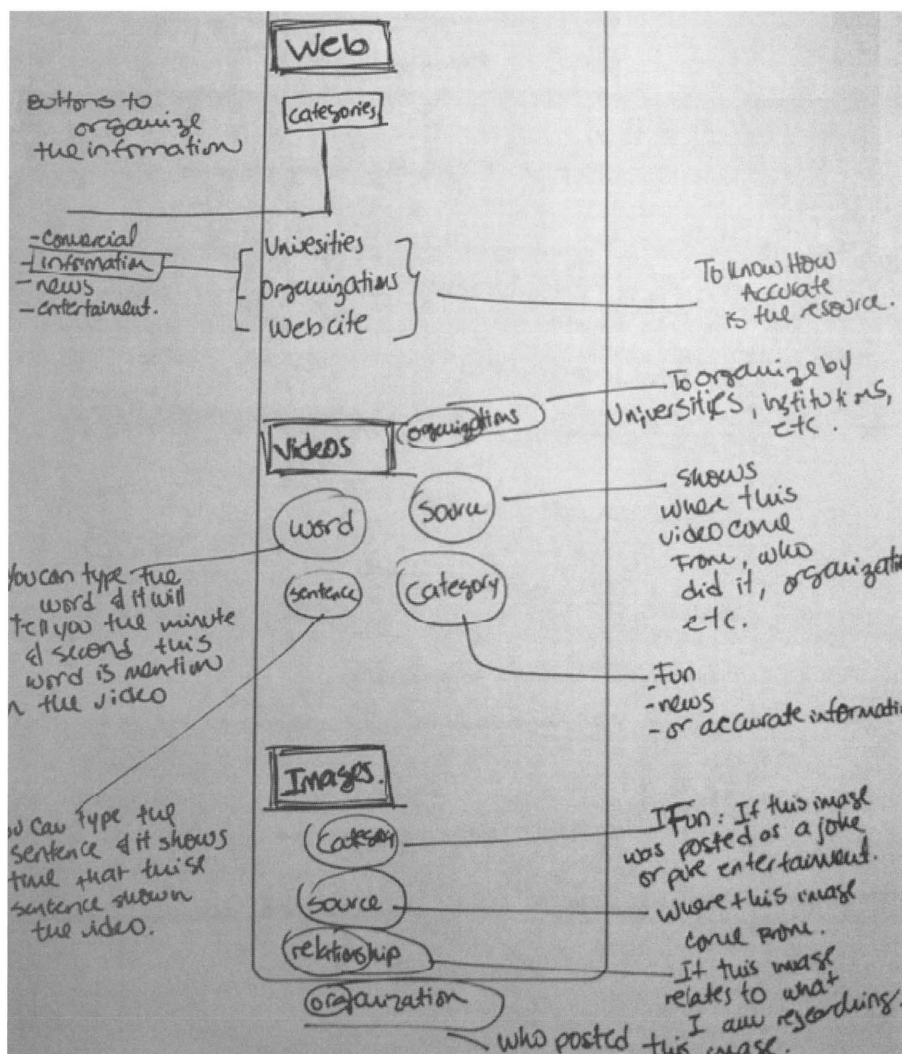 Web
categories
Buttons to
organize
the information
-comercial
-information
-news
-entertainment.
Univesities
Organizations
Web cite
To know How
Accurate
is the resource.
Videos
organizations
To organize by
Universities, institutions,
etc.
word
Source
shows
where this
video come
From, who
did it, organization
etc.
sentence
Category
you can type the
word & it will
tell you the minute
& second this
word is mention
the video
-Fun
-news
-or accurate informati
Images.
Can type the
sentence & it shows
time that this
sentence shown
the video.
Category
Fun: If this image
was posted as a joke
or pure entertainment.
source
where this image
come From.
relationship
If this image
relates to what
I am researching.
organization
who posted this image.